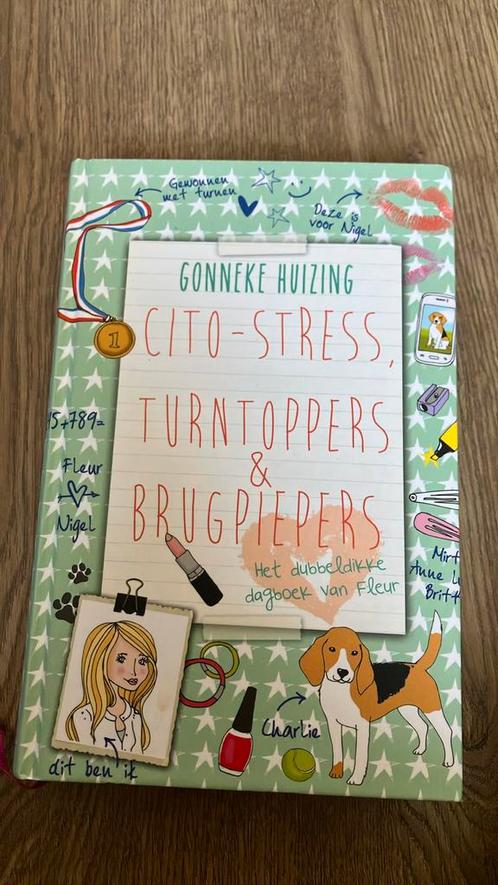 Gewonnen
met turnen
Deze is
voor Nigel
GONNEKE HUIZING
1
CITO-STRESS,
TURNTOPPERS
&
BRUGPIEPERS
Het dubbeldikke
dagboek van Fleur
15+789=
Fleur
Nigel
Anne
Charlie
dit ben ik